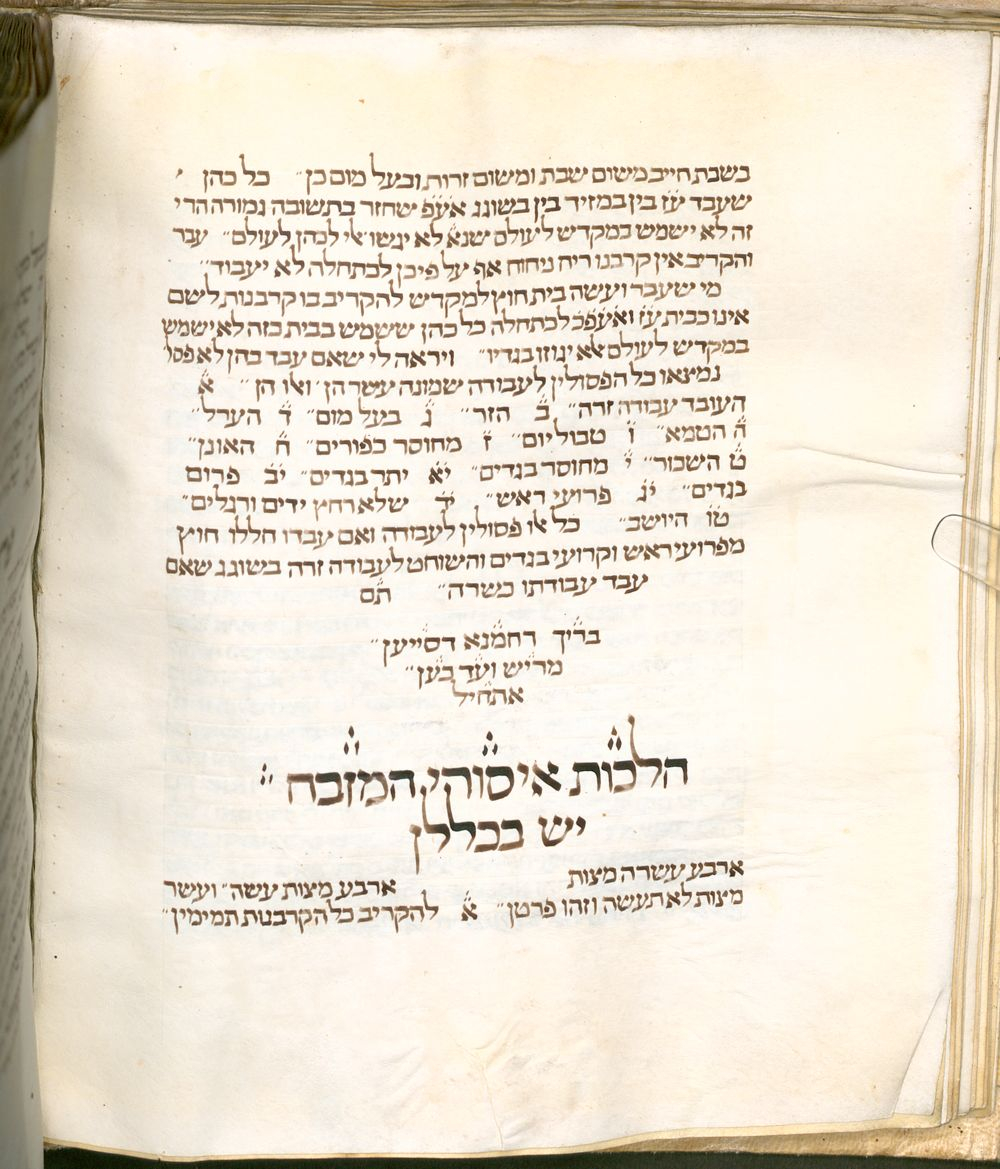 בשבת חייב משום שבת ומשום זרות ובעל מום כן״ כל כהן
שעבד ע׳ז בין במזיד בין בשוגג אע׳פ שחזר בתשובה גמורה הרי
זה לא ישמש במקדש לעולם שנא׳ לא יגשו אלי לכהן לי לעולם״ עבר
והקריב אין קרבנו ריח ניחוח אף על פי כן לכתחלה לא יעבוד״
מי שעבר ועשה בית חוץ למקדש להקריב בו קרבנות לשם
אינו כבית ע׳ז ואעפ׳כ לכתחלה כל כהן ששמש בבית כזה לא ישמש
במקדש לעולם אלא יגוזו בגדיו״ ויראה לי שאם עבד כהן לא פסל
נמצאו כל הפסולין לעבודה שמונה עשר הן׳ ואלו הן״ א
העובד עבודה זרה״ ב הזר״ ג בעל מום״ ד הערל״
ה הטמא״ ו טבול יום״ ז מחוסר כפורים״ ח האונן״
ט השכור״ י מחוסר בגדים״ יא יתר בגדים״ יב פרום
בגדים״ יג פרועי ראש״ יד שלא רחץ ידים ורגלים״
טו היושב״ כל אלו פסולין לעבודה ואם עבדו חללו חוץ
מפרועי ראש וקרועי בגדים והשוחט לעבודה זרה בשוגג שאם
עבד עבודתו כשרה״ תם
בריך רחמנא דסייען״
מריש ועד כען״
אתחיל
הלכות איסורי המזבח״
יש בכללן
ארבע עשרה מצות
ארבע מצות עשה״ ועשר
מצות לא תעשה וזהו פרטן״ א להקריב כל הקרבנות תמימין״